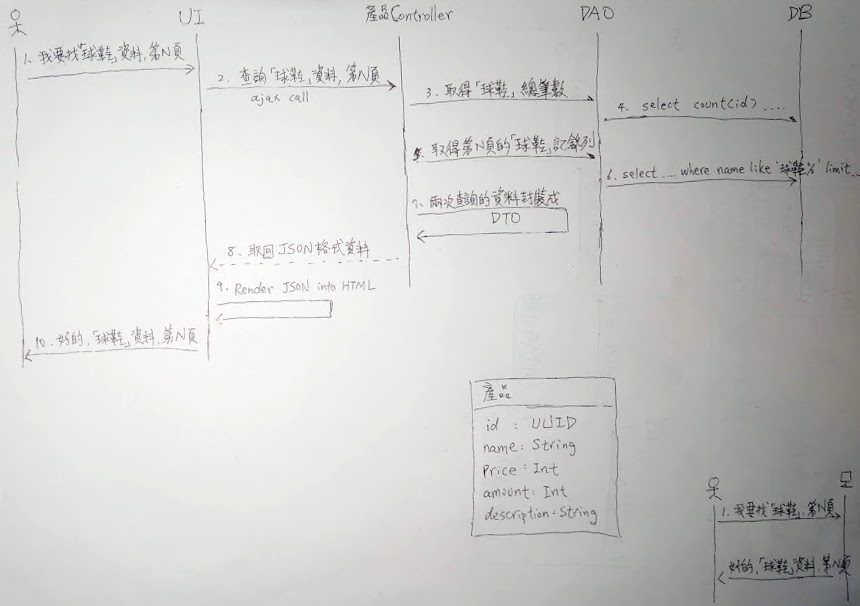 UI
產品Controller
DAO
DB
1. 我要找「球鞋」資料,第N頁
2. 查詢「球鞋」資料,第N頁
ajax call
3. 取得「球鞋」總筆數
4. select count(id) ....
5. 取得第N頁的「球鞋」記錄列
6. select .... where name like '球鞋%' limit...
7. 兩次查詢的資料封裝成
DTO
8. 取回JSON格式資料
9. Render JSON into HTML
10. 好的,「球鞋」資料,第N頁
產品
id : UUID
name: String
Price: Int
amount: Int
description: String
1. 我要找「球鞋」,第N頁
好的,「球鞋」資料,第N頁